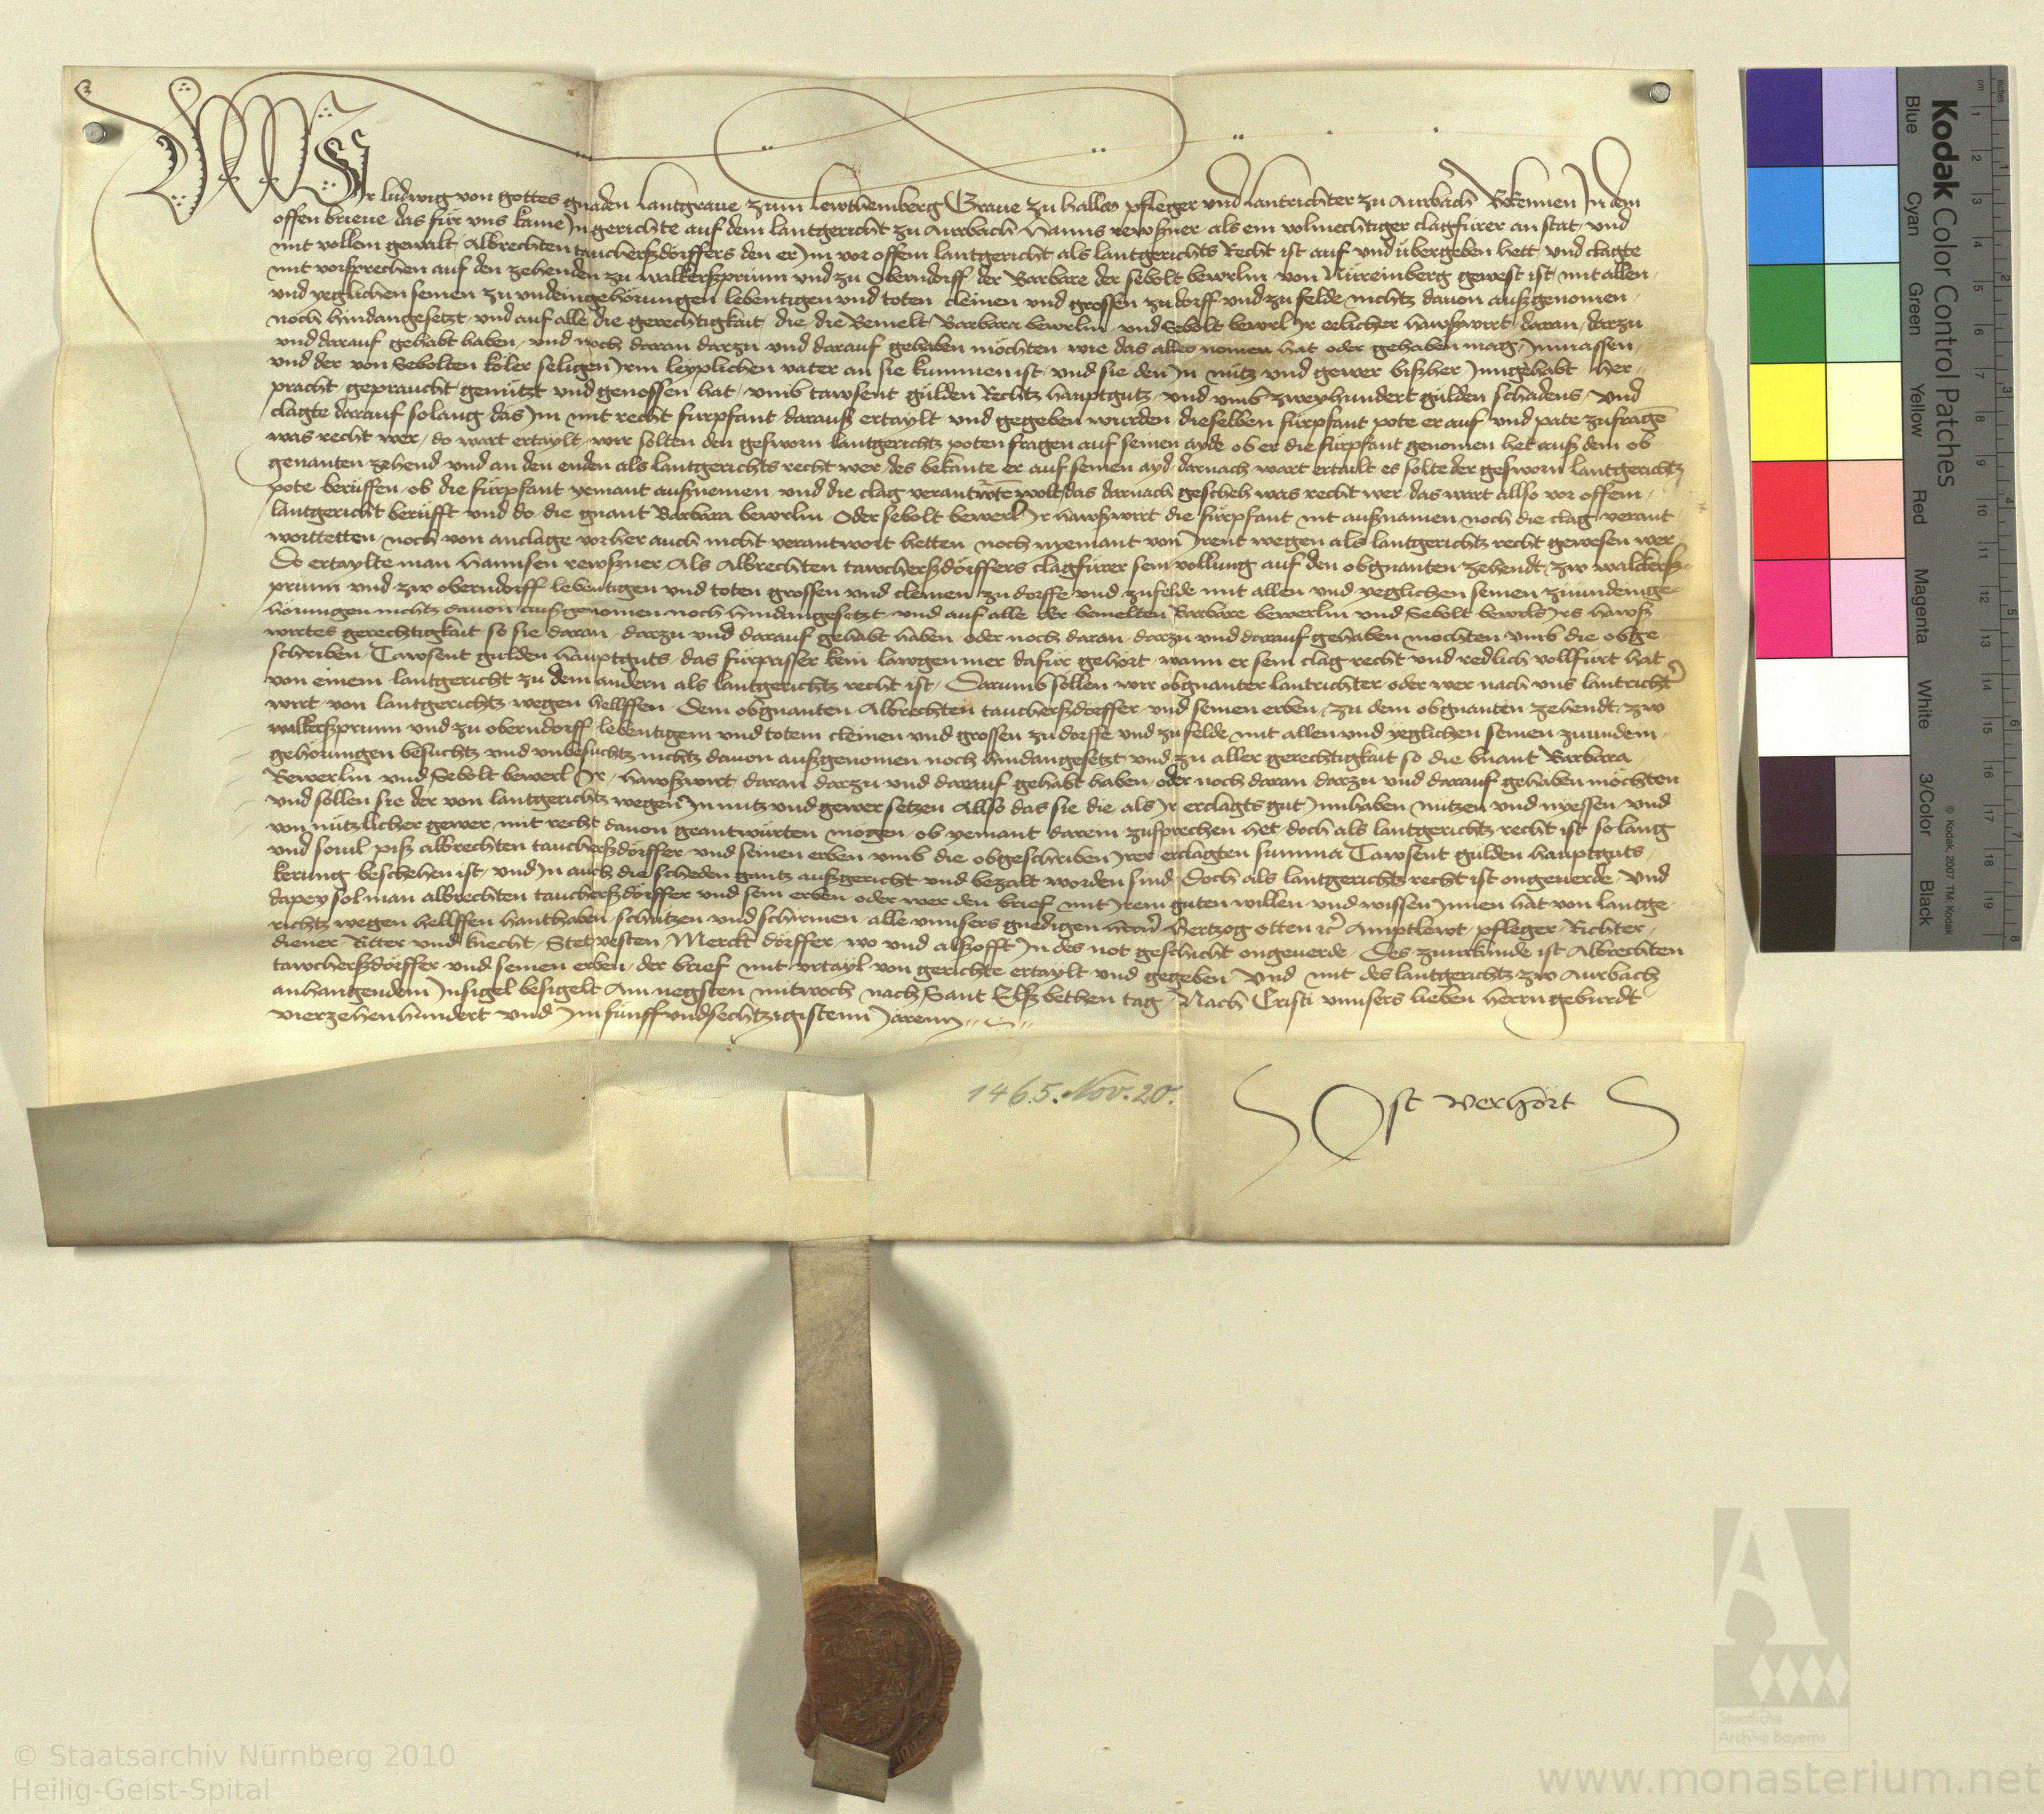 WIr ludwig von gottes gnaden lantgraue zum lewthemberg Graue zu hallss pfleger vnd lantrichter zu Aurbach Bekennen Jn dem
offen brieue das für vns kame Jn gerichte auf dem lantgericht zu Aurbach hanns rewszner als ein volmechtiger clagfürer an stat vnd
mit vollem gewalt Albrechten taucherszdörffers den er Jm vor offem lantgericht als lantgerichts Recht ist auf vnd übergeben hett vnd clagte
mit vorsprechen auf den zehenden zu walkerszprunn vnd zu Oberndorff der Barbare der sebolt bewrlin von Nüremberg gewest ist mit allen
vnd yeglichen seinen zu vndeingehörungen lebentigen vnd toten cleinen vnd grossen zu dorff vnd zu felde nichtz dauon auszgenomen
noch hindangesetzt vnd auf alle die gerechtigkait die die Bemelt Barbara bewrlin vnd Sebolt bewrl Jr eelicher hawszwirt daran darzu
vnd darauf gehabt haben vnd noch daran darzu vnd darauf gehaben möchten wie das alles nomen hat oder gehaben mag Jnmassen
vnd der von Sebolten koler seligen Jrm leyplichen vater an sie kummen ist vnd sie den Jn nutz vnd gewer biszher Jnngehabt her
pracht gepraucht genützt vnd genossen hat vmb tawsent gülden Rechtz hauptgutz vnd vmb zweyhundert gülden schadens Vnd
clagte darauf solang das Jm mit recht fürpfant darausz ertaylt vnd gegeben wurden dieselben fürpfant pote er auf vnd pate zufragen
was recht wer do wart ertaylt wir solten den gesworn lantgerichtz poten fragen auf seinen ayde ob er die fürpfant genomen het ausz dem ob
genanten zehend vnd an den enden als lantgerichts recht wer des bekante er auf seinen ayd darnach wart ertailt es solte der gesworn lantgerichtz
pote berüffen ob die fürpfant yemant ausznemen vnd die clag verantwurten wolt das darnach geschech was recht wer das wart allso vor offem
lantgericht berüfft vnd do die gnant Barbara bewrlin Oder sebolt bewerl Jr hawszwirt die fürpfant nit ausznamen noch die clag verant
worttetten noch von anclage vorher auch nicht verantwort hetten noch nyemant von Jrent wegen als lantgerichtz recht gewesen wer
Do ertaylte man hannsen rewszner Als Albrechten tawcherszdörffers clagfürer sein vollung auf den obgnanten zehendt zw walckersz
prunn vnd zw oberndorff lebentigen vnd toten grossen vnd cleinen zu dorffe vnd zufelde mit allen vnd yeglichen seinen zuundeinge
hörungen nichtz dauon auszgenomen noch hindangesetzt vnd auf alle der bemelten Barbare bewerlin vnd Sebolt bewrls Jrs hawsz
wirtes gerechtigkait so sie daran darzu vnd darauf gehabt haben oder noch daran darzu vnd darauf gehaben mochten vmb die obge
schriben Tawsent gulden hauptguts das fürpasser kein lawgen mer dafür gehört wann er sein clag recht vnd redlich vollfürt hat
von einem lantgericht zu dem andern als lantgerichtz recht ist Darumb sollen wir obgnanter lantrichter oder wer nach vns lantrichter
wirt von lantgerichtz wegen hellffen Dem obgnanten Albrechten taucherszdorffer vnd seinen erben zu dem obgnanten zehendt zw
walkerszprunn vnd zu oberndorff lebentigem vnd totem cleinen vnd grossen zu dorffe vnd zu felde mit allen vnd yeglichen seinen zuundein
gehörungen besuchtz vnd vnbesuchtz nichtz dauon auszgenomen noch hindangesetzt vnd zu aller gerechtigkait so die bnant Barbara
Bewerlin vnd Sebolt bewerl Jr hawszwirt daran darzu vnd darauf gehabt haben oder noch daran darzu vnd darauf gehaben möchten
vnd sollen sie der von lantgerichtz wegen Jn nutz vnd gewer setzen Allso das sie die als Jr erclagts gut Jnnhaben nutzen vnd nyessen vnd
von nützlicher gewer mit recht dauon geantwürten mögen ob yemant darein zusprechen het doch als lantgerichtz recht ist so lang
vnd souil pisz albrechten taucherszdörffer vnd seinen erben vmb die obgeschriben Jrer erclagten summa Tawsent gülden hauptguts
kerung beschehen ist vnd Jn auch die scheden gantz auszgericht vnd bezalt worden sind Doch als lantgerichtz recht ist ongeuerde Vnd
dapey sol man albrechten taucherszdörffer vnd sein erben oder wer den brief mit Jrem guten willen vnd wissen Jnnen hat von lantge
richtz wegen hellffen hanthaben schützen vnd schirmen alle vnnsers gnedigen herrn hertzog otten etc Amptlewt pfleger Richter
diener Ritter vnd knecht Stet vesten Merckt dörffer wo vnd alszofft Jn des not geschicht ongeuerde Des zuurkünde ist Albrechten
tawcherszdörffer vnd seinen erben der brief mit vrtayl von gerichte ertaylt vnd gegeben Vnd mit des lantgerichtz zw Aurbach
anhangendem Jnsigel besigelt Am negsten mitwoch nach Sant Elszbethen tag Nach Cristi vnnsers lieben herrn geburdt
vierzehenhundert vnd Jm fünffvndsechtzigistenn Jarenn
1465. Nov. 20.
Jst verhört
Kodak Color Control Patches
Blue Cyan Green Yellow Red Magenta White 3/Color Black
© Kodak, 2007 TM: Kodak
© Staatsarchiv Nürnberg 2010
Heilig-Geist-Spital
Staatliche
Archive Bayerns
www.monasterium.net